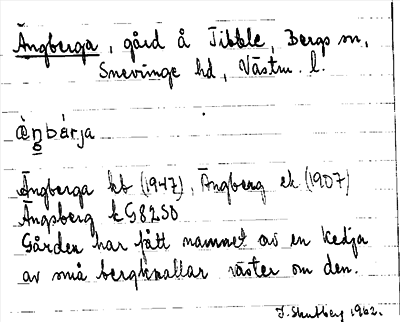 Ängberga, gård å Tibble, Bergs sn,
Snevinge hd, Västm. l.
ὰŋbárja
Ängberga kb (1947), Ängberg ek (1907)
Ängsberg k G8250
Gården har fått namnet av en kedja
av små bergknallar väster om den.
1962.